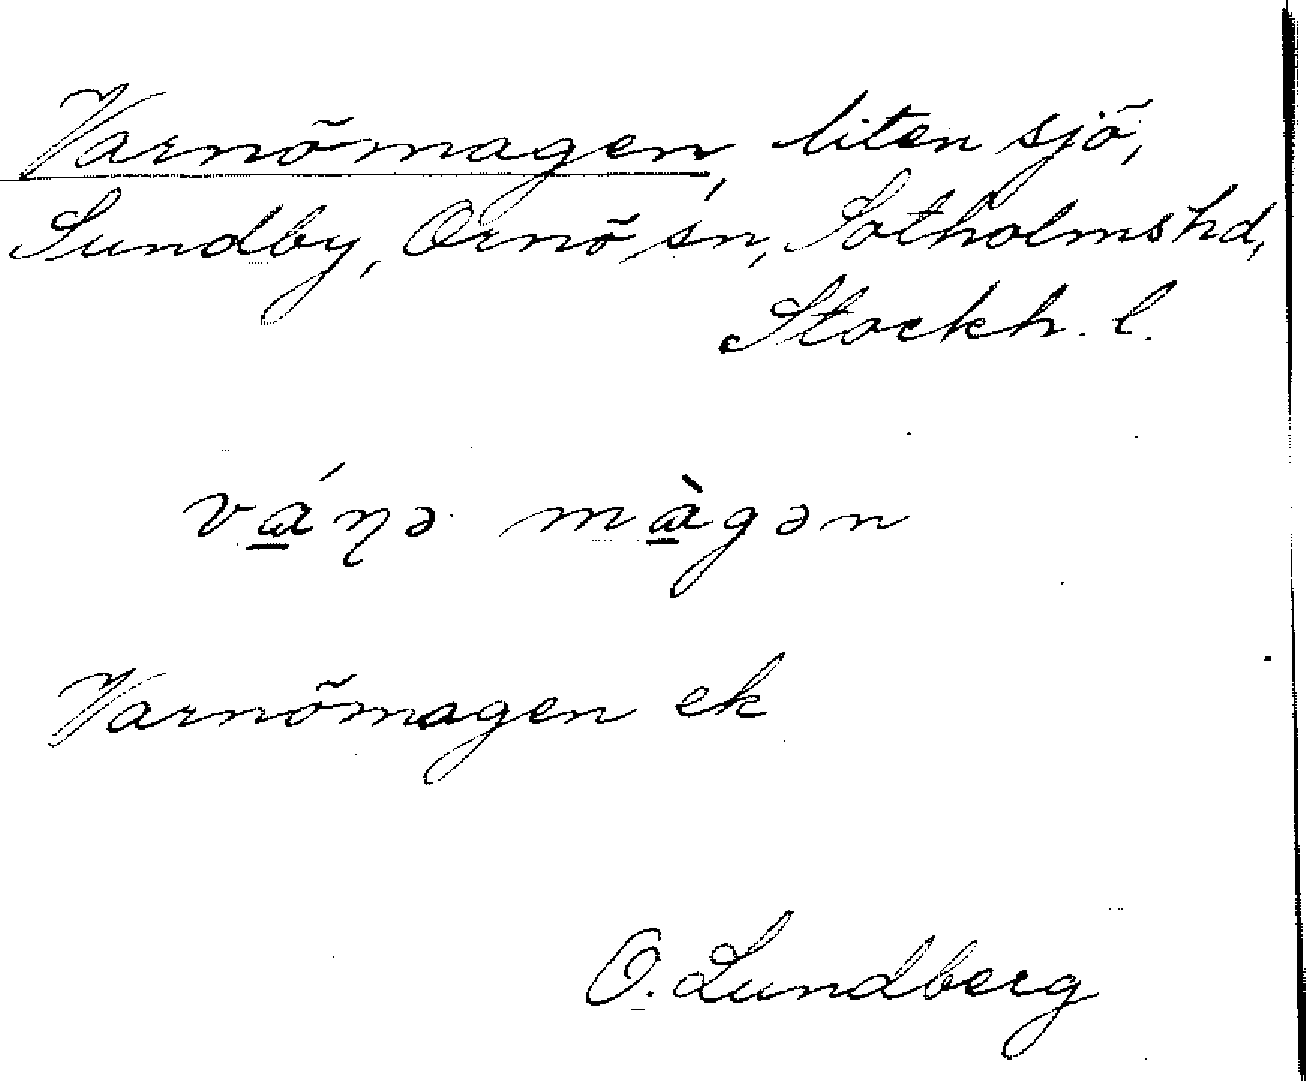 Varnömagen, liten sjö,
Sundby, Ornö sn, Sotholms hd,
Stockh. l.
vá̱ŋə mà̱gən
Varnömagen ek
O. Lundberg